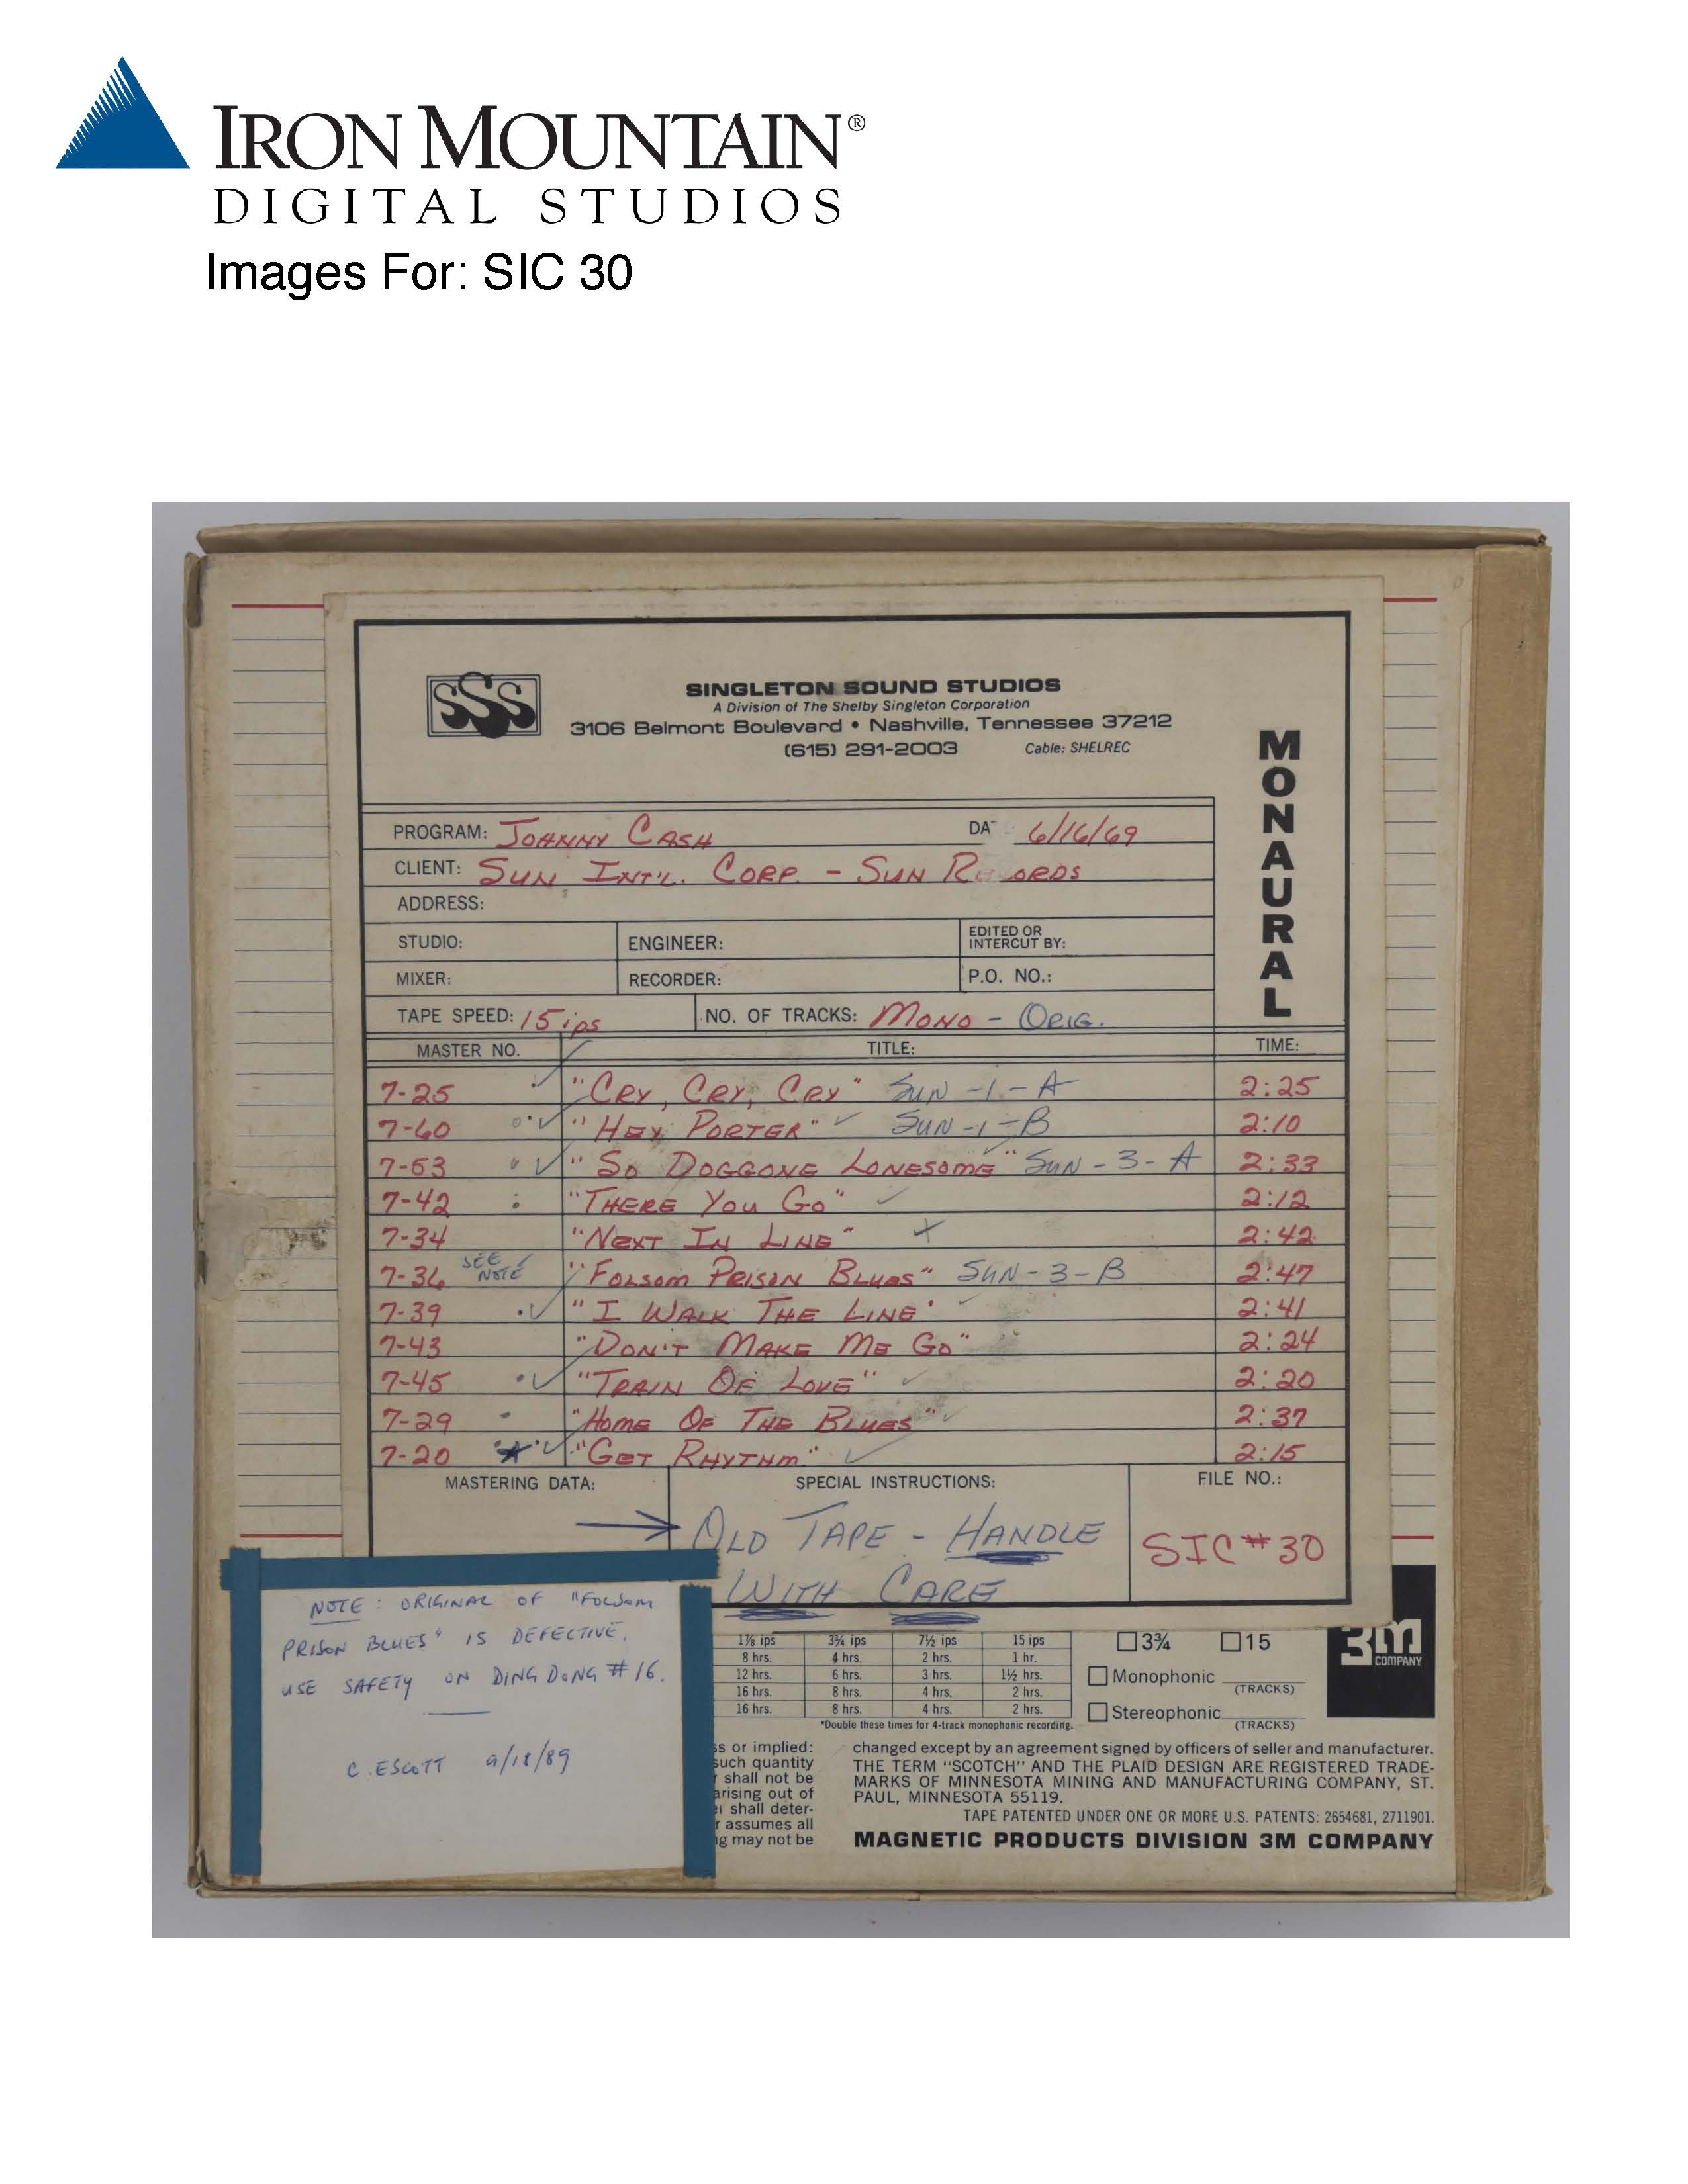 IRON MOUNTAIN®
DIGITAL STUDIOS
Images For: SIC 30
SSS
SINGLETON SOUND STUDIOS
A Division of The Shelby Singleton Corporation
3106 Belmont Boulevard • Nashville, Tennessee 37212
(615) 291-2003 Cable: SHELREC
MONAURAL
PROGRAM: JOHNNY CASH DA 6/16/69
CLIENT: SUN INT'L. CORP. - SUN RECORDS
ADDRESS:
STUDIO: ENGINEER: EDITED OR INTERCUT BY:
MIXER: RECORDER: P.O. NO.:
TAPE SPEED: 15 ips NO. OF TRACKS: MONO - ORIG.
MASTER NO. TITLE: TIME:
7-25 ✓ "CRY, CRY, CRY" SUN-1-A 2:25
7-60 ✓ "HEY, PORTER" ✓ SUN-1-B 2:10
7-53 ✓ "SO DOGGONE LONESOME" SUN-3-A 2:33
7-42 "THERE YOU GO" ✓ 2:12
7-34 "NEXT IN LINE" + 2:42
7-36 SEE NOTE "FOLSOM PRISON BLUES" SUN-3-B 2:47
7-39 ✓ "I WALK THE LINE" ✓ 2:41
7-43 "DON'T MAKE ME GO" 2:24
7-45 ✓ "TRAIN OF LOVE" ✓ 2:20
7-29 "HOME OF THE BLUES" ✓ 2:37
7-20 ✓ "GET RHYTHM" ✓ 2:15
MASTERING DATA: SPECIAL INSTRUCTIONS: FILE NO.:
→ OLD TAPE - HANDLE
WITH CARE
SIC #30
NOTE: ORIGINAL OF "FOLSOM
PRISON BLUES" IS DEFECTIVE.
USE SAFETY ON DING DONG #16.
C. ESCOTT 9/18/89
1⅞ ips 3¾ ips 7½ ips 15 ips
8 hrs. 4 hrs. 2 hrs. 1 hr.
12 hrs. 6 hrs. 3 hrs. 1½ hrs.
16 hrs. 8 hrs. 4 hrs. 2 hrs.
16 hrs. 8 hrs. 4 hrs. 2 hrs.
*Double these times for 4-track monophonic recording.
☐ 3¾ ☐ 15
☐ Monophonic
(TRACKS)
☐ Stereophonic
(TRACKS)
3M
COMPANY
ss or implied:
such quantity
shall not be
arising out of
shall deter-
r assumes all
ng may not be
changed except by an agreement signed by officers of seller and manufacturer.
THE TERM "SCOTCH" AND THE PLAID DESIGN ARE REGISTERED TRADE-
MARKS OF MINNESOTA MINING AND MANUFACTURING COMPANY, ST.
PAUL, MINNESOTA 55119.
TAPE PATENTED UNDER ONE OR MORE U.S. PATENTS: 2654681, 2711901.
MAGNETIC PRODUCTS DIVISION 3M COMPANY